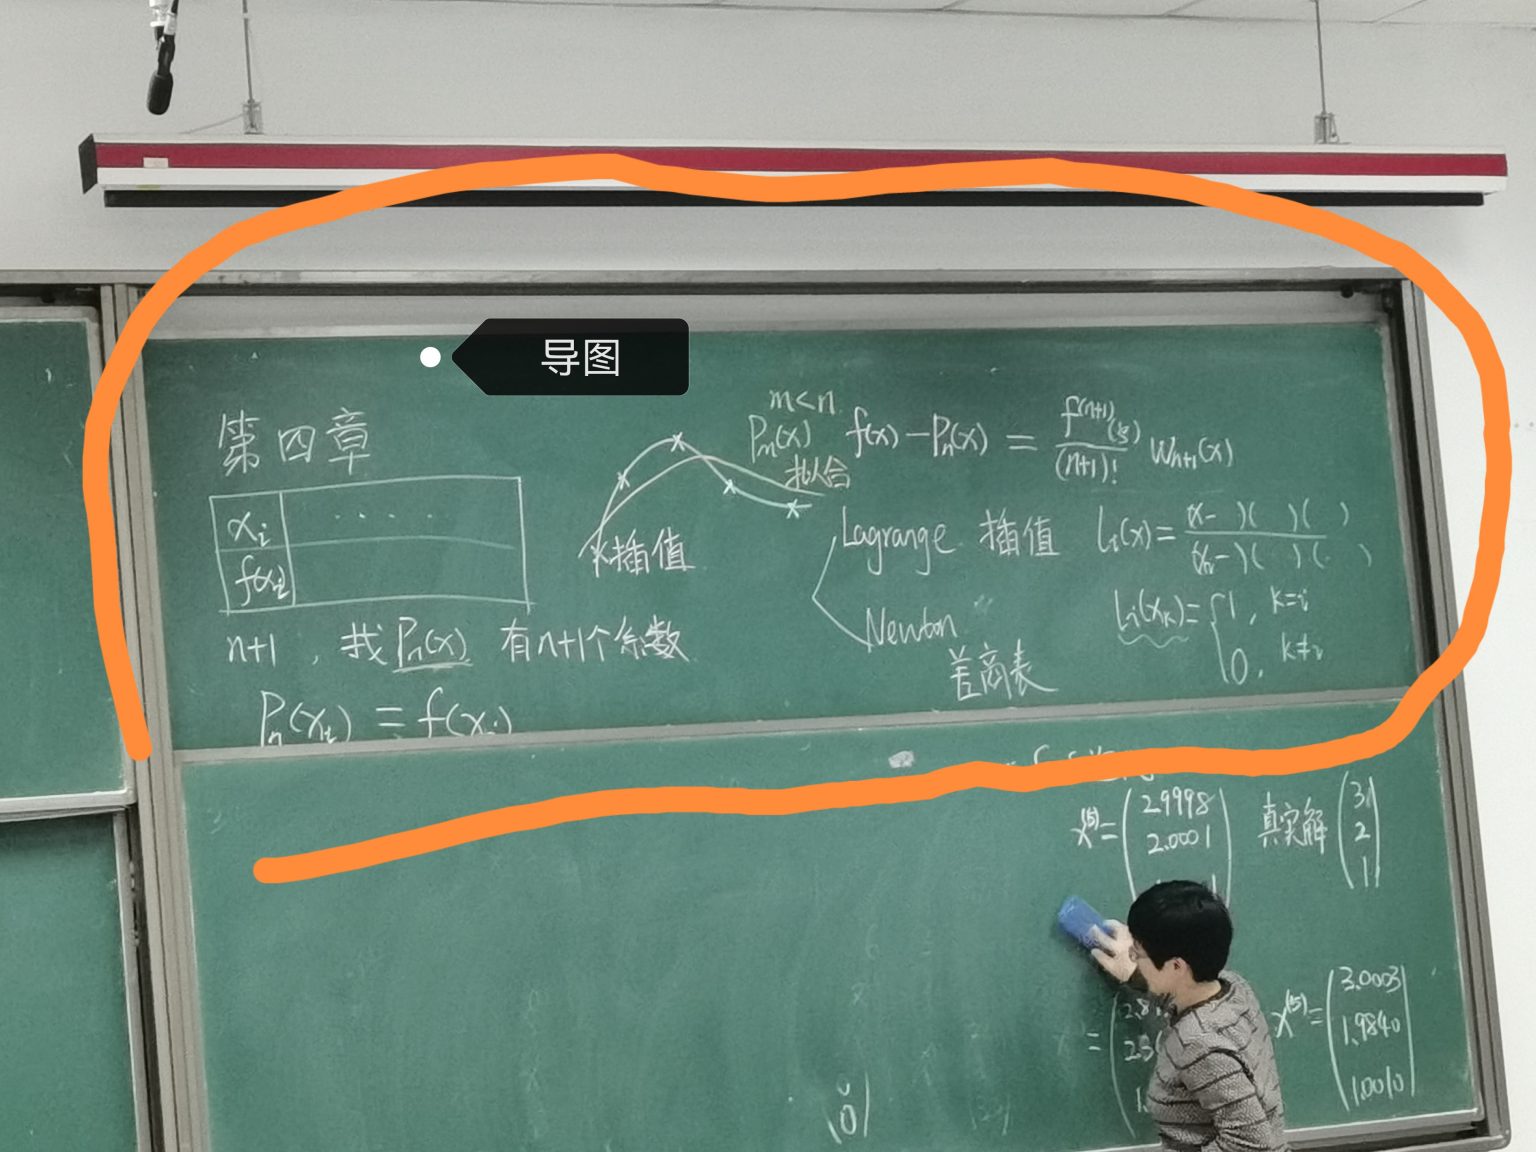 导图
第四章
x_i ....
f(x_i)
n+1 , 找 P_n(x) 有n+1个系数
P_n(x_i) = f(x_i)
插值
m<n
P_m(x)
拟合
f(x)-P_n(x) = \frac{f^{(n+1)}(ξ)}{(n+1)!} W_{n+1}(x)
Lagrange 插值 l_i(x)= \frac{(x- )( )( )}{(x_i- )( )( )}
l_i(x_k)= { 1, k=i
0, k≠i
Newton
差商表
2.9998
2.0001
真实解 ( 3
2
1 )
3.0003
1.9840
1.0010